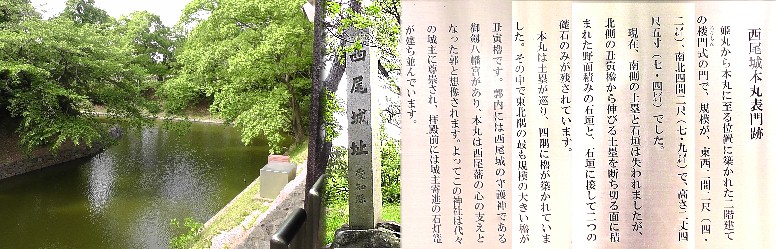 西尾城址
愛知縣
西尾城本丸表門跡
姫丸から本丸に至る位置に築かれた二階建て
の楼門式の門で、規模が、東西二間二尺（四・
二㍍）、南北四間二尺（七・九㍍）で、高さ二丈四
尺五寸（七・四㍍）でした。
現在、南側の土塁と石垣は失われましたが、
北側の丑寅櫓から伸びる土塁を断ち切る面に積
まれた野面積みの石垣と、石垣に接して二つの
礎石のみが残されています。
本丸は土塁が巡り、四隅に櫓が築かれていま
した。その中で東北隅の最も規模の大きい櫓が
丑寅櫓です。郭内には西尾城の守護神である
御剱八幡宮があり、本丸は西尾藩の心の支えと
なった郭と想像されます。よってこの神社は代々
の城主に崇崇され、拝殿前には城主寄進の石灯篭
が建ち並んでいます。